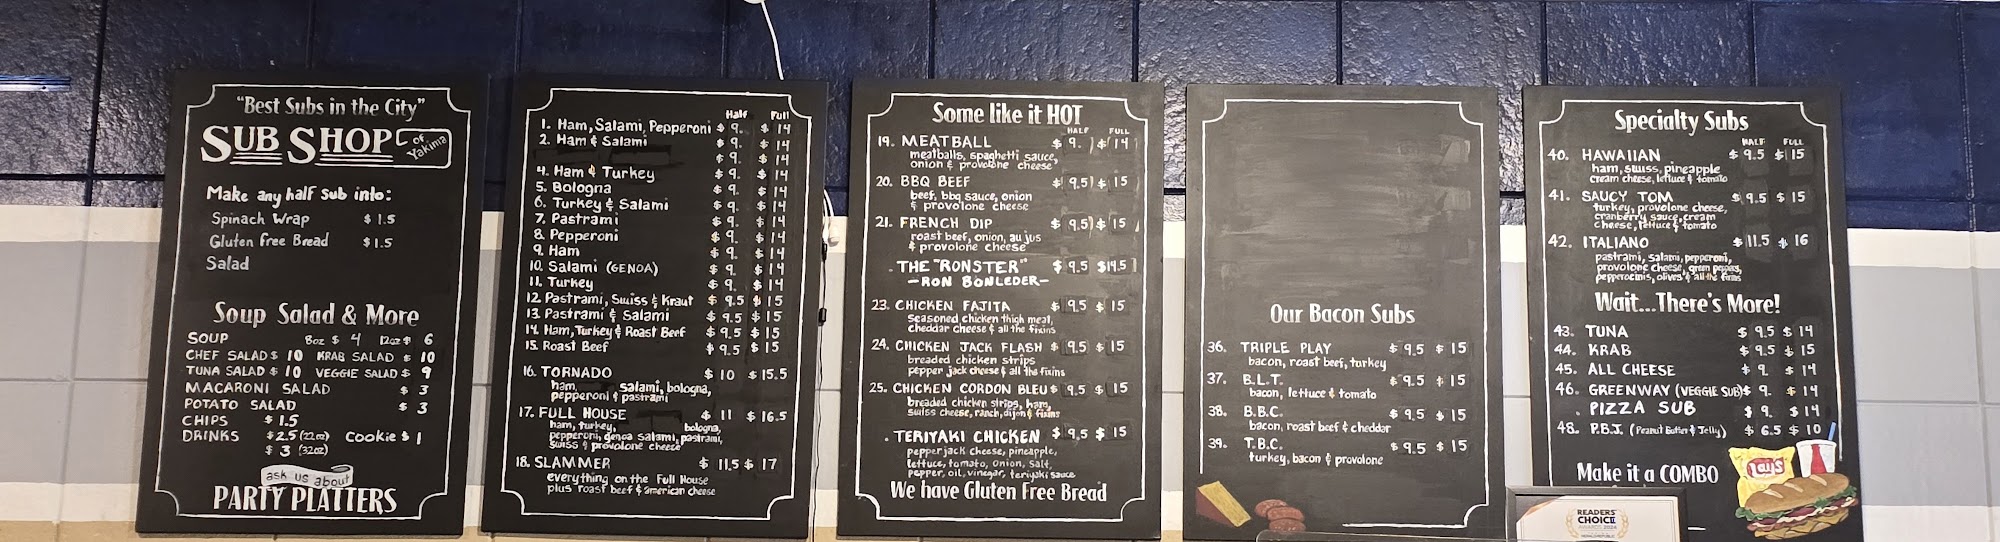 "Best Subs in the City"
SUB SHOP of Yakima
Make any half sub into:
Spinach Wrap $1.5
Gluten free Bread $1.5
Salad
Soup Salad & More
SOUP 8oz $ 4 12oz $ 6
CHEF SALAD $ 10 KRAB SALAD $ 10
TUNA SALAD $ 10 VEGGIE SALAD $ 9
MACARONI SALAD $ 3
POTATO SALAD $ 3
CHIPS $ 1.5
DRINKS $2.5 (22oz) Cookie $ 1
$ 3 (32oz)
ask us about
PARTY PLATTERS
Half Full
1. Ham, Salami, Pepperoni $ 9. $ 14
2. Ham & Salami $ 9. $ 14
$ 9. $ 14
4. Ham & Turkey $ 9. $ 14
5. Bologna $ 9. $ 14
6. Turkey & Salami $ 9. $ 14
7. Pastrami $ 9. $ 14
8. Pepperoni $ 9. $ 14
9. Ham $ 9. $ 14
10. Salami (GENOA) $ 9. $ 14
11. Turkey $ 9. $ 14
12. Pastrami, Swiss & Kraut $ 9.5 $ 15
13. Pastrami & Salami $ 9.5 $ 15
14. Ham, Turkey & Roast Beef $ 9.5 $ 15
15. Roast Beef $ 9.5 $ 15
16. TORNADO $ 10 $ 15.5
ham, salami, bologna,
pepperoni & pastrami
17. FULL HOUSE $ 11 $ 16.5
ham, turkey, bologna,
pepperoni, genoa salami, pastrami,
swiss & provolone cheese
18. SLAMMER $ 11.5 $ 17
everything on the Full House
plus roast beef & american cheese
Some like it HOT
HALF FULL
19. MEATBALL $ 9. $ 14
meatballs, spaghetti sauce,
onion & provolone cheese
20. BBQ BEEF $ 9.5 $ 15
beef, bbq sauce, onion
& provolone cheese
21. FRENCH DIP $ 9.5 $ 15
roast beef, onion, au jus
& provolone cheese
. THE "RONSTER" $ 9.5 $14.5
-RON BONLEDER-
23. CHICKEN FAJITA $ 9.5 $ 15
seasoned chicken thigh meat,
cheddar cheese & all the fixins
24. CHICKEN JACK FLASH $ 9.5 $ 15
breaded chicken strips
pepper jack cheese & all the fixins
25. CHICKEN CORDON BLEU $ 9.5 $ 15
breaded chicken strips, ham,
swiss cheese, ranch, dijon & fixins
. TERIYAKI CHICKEN $ 9.5 $ 15
pepper jack cheese, pineapple,
lettuce, tomato, onion, salt,
pepper, oil, vinegar, teriyaki sauce
We have Gluten Free Bread
Our Bacon Subs
36. TRIPLE PLAY $ 9.5 $ 15
bacon, roast beef, turkey
37. B.L.T. $ 9.5 $ 15
bacon, lettuce & tomato
38. B.B.C. $ 9.5 $ 15
bacon, roast beef & cheddar
39. T.B.C. $ 9.5 $ 15
turkey, bacon & provolone
Specialty Subs
HALF FULL
40. HAWAIIAN $ 9.5 $ 15
ham, swiss, pineapple
cream cheese, lettuce & tomato
41. SAUCY TOM $ 9.5 $ 15
turkey, provolone cheese,
cranberry sauce, cream
cheese, lettuce & tomato
42. ITALIANO $ 11.5 $ 16
pastrami, salami, pepperoni,
provolone cheese, green peppers,
pepperocinis, olives & all the fixins
Wait...There's More!
43. TUNA $ 9.5 $ 14
44. KRAB $ 9.5 $ 15
45. ALL CHEESE $ 9. $ 14
46. GREENWAY (VEGGIE SUB) $ 9. $ 14
. PIZZA SUB $ 9. $ 14
48. P.B.J. (Peanut Butter & Jelly) $ 6.5 $ 10
Make it a COMBO
Lay's
READERS'
CHOICE
AWARDS 2024